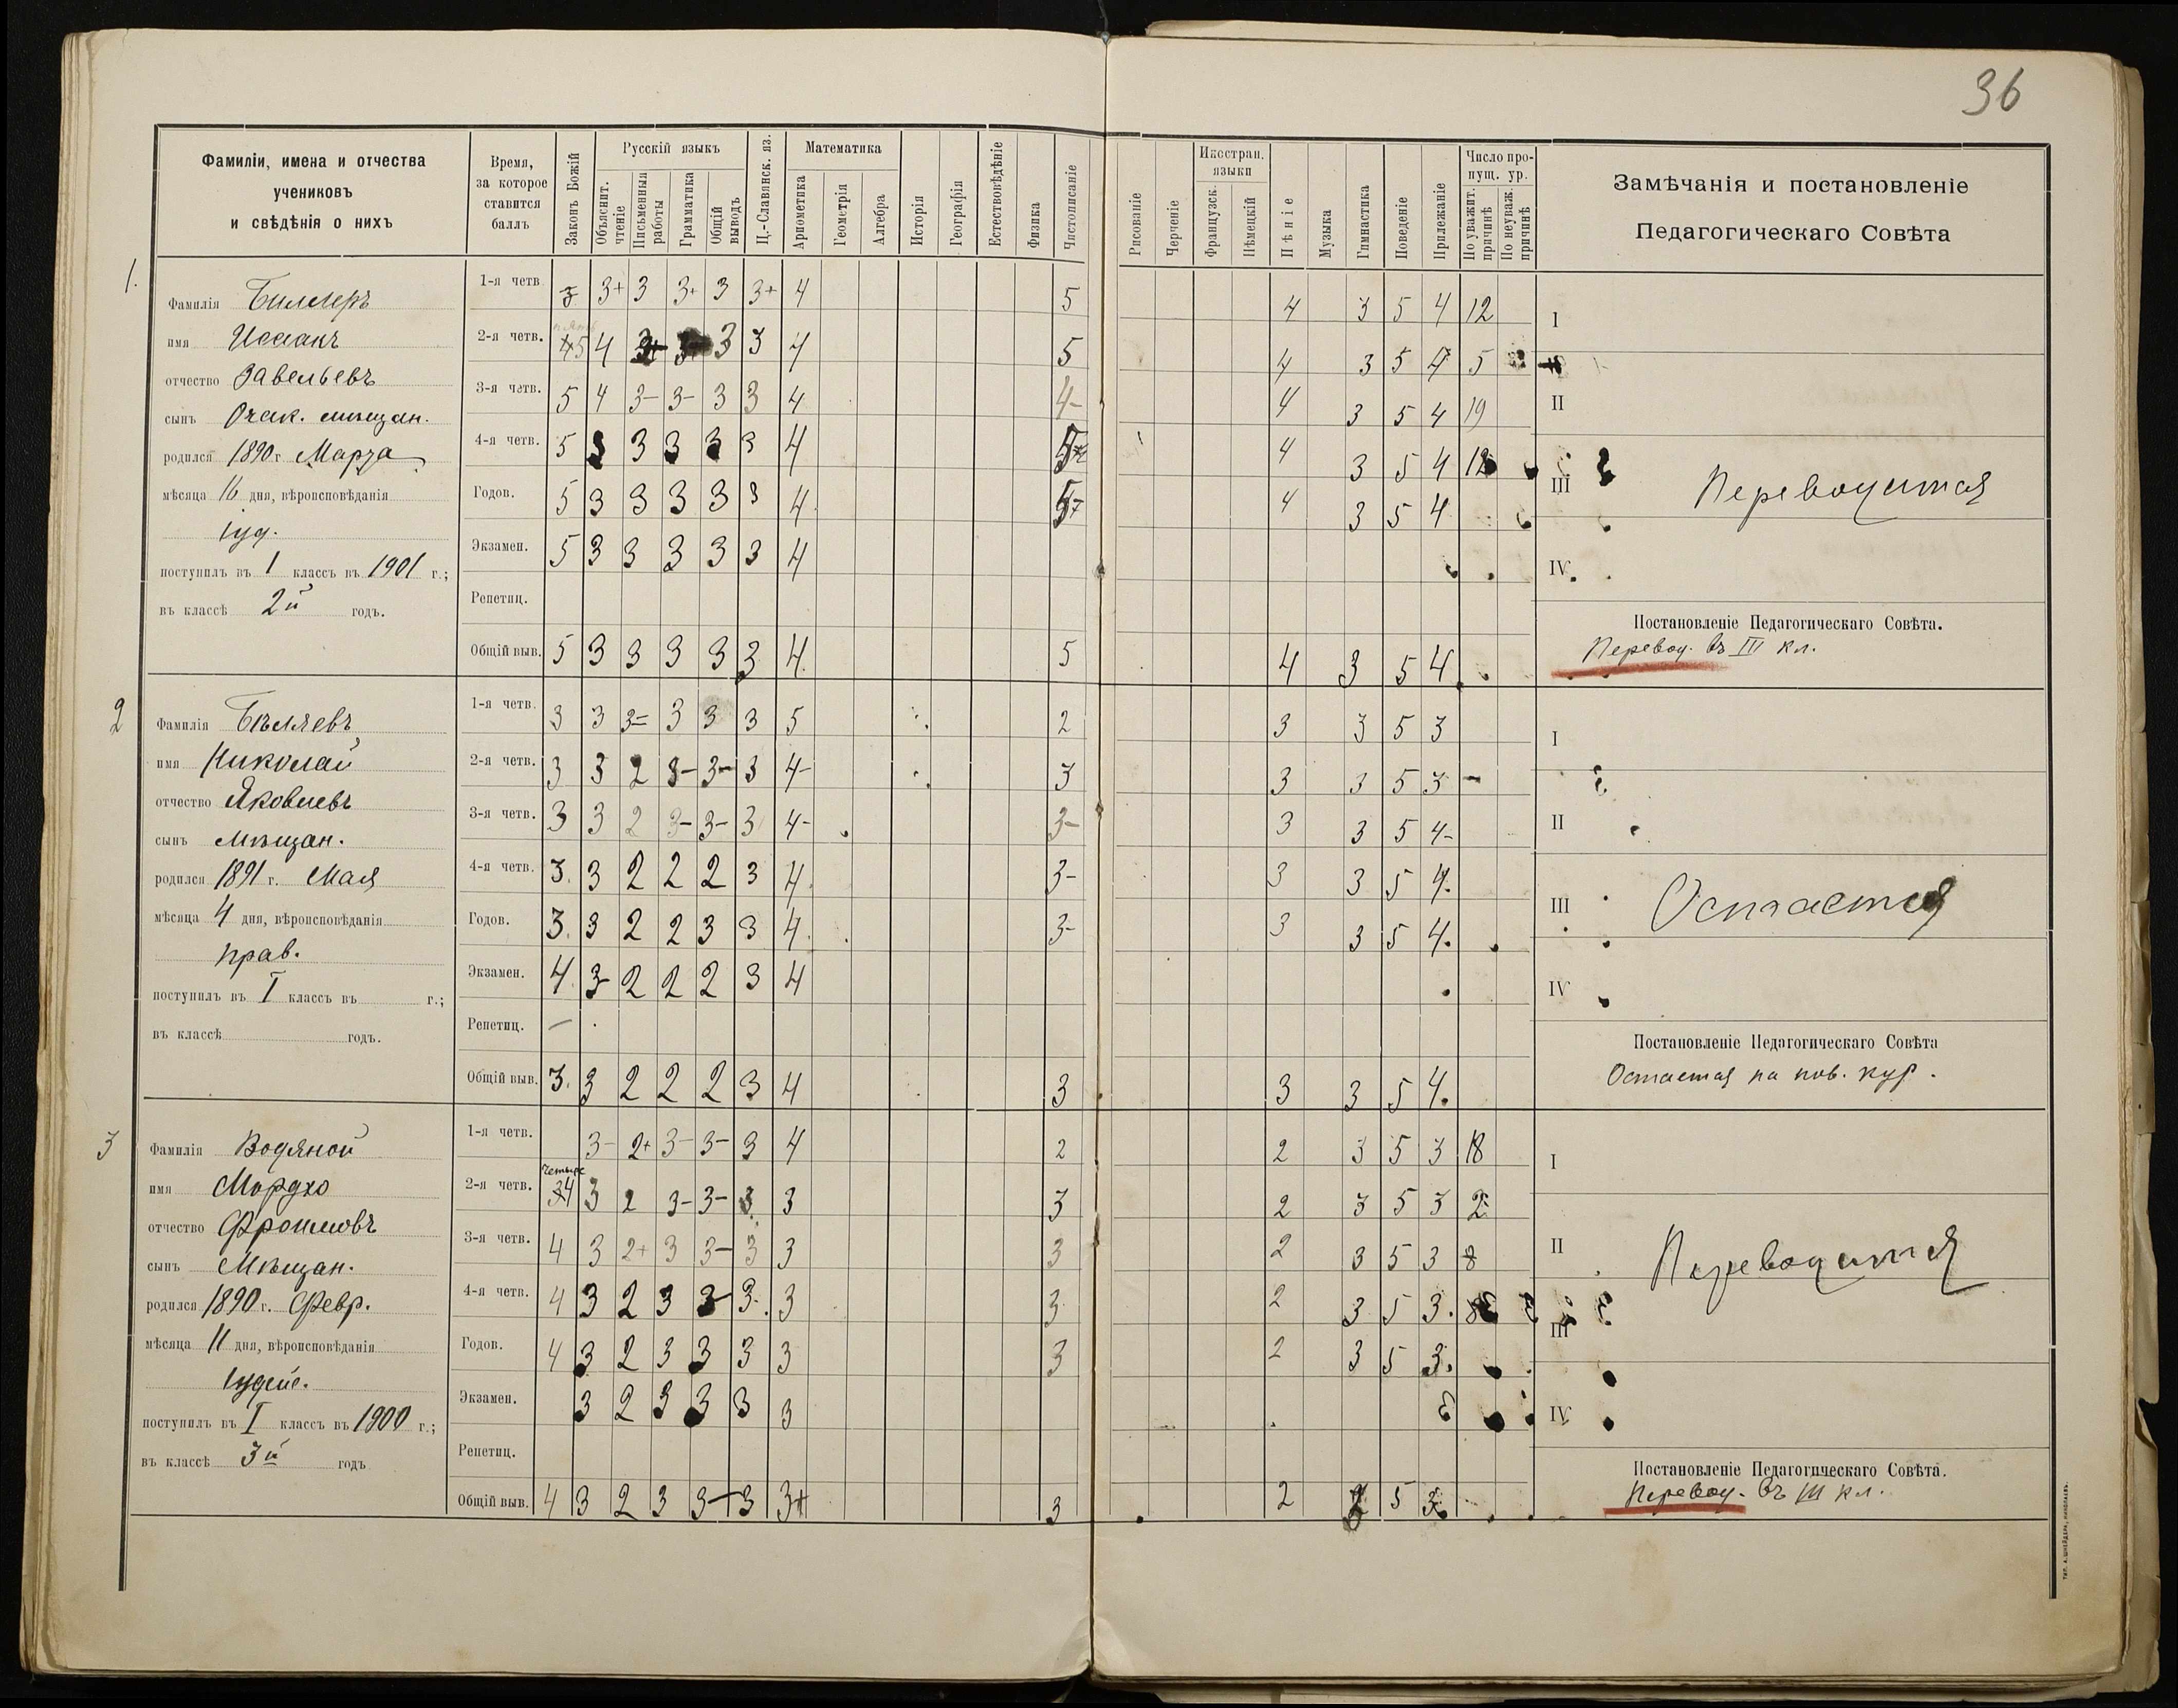 36
Фамиліи, имена и отчества
учениковъ
и свѣдѣнія о нихъ
Время,
за которое
ставится
баллъ
Законъ Божій
Русскій языкъ
Объяснит. чтеніе
Письменныя работы
Грамматика
Общій выводъ
Ц.-Славянск. яз.
Математика
Ариѳметика
Геометрія
Алгебра
Исторія
Географія
Естествовѣдѣніе
Физика
Чистописаніе
Рисованіе
Черченіе
Иностран.
языки
Французск.
Нѣмецкій
Пѣніе
Музыка
Гимнастика
Поведеніе
Прилежаніе
Число про-
пущ. ур.
По уважит. причинѣ
По неуваж. причинѣ
Замѣчанія и постановленіе
Педагогическаго Совѣта
1.
Фамилія
имя Исаакъ
отчество Завельевъ
сынъ Очак. мѣщан.
родился 1890 г Марта
мѣсяца 16 дня, вѣроисповѣданія
іуд.
поступилъ въ I классъ въ 1901 г.;
въ классѣ 2й годъ.
1-я четв. 3 3+ 3 3+ 3 3+ 4 5 4 3 5 4 12
2-я четв. 5 4 3 3 4 5 4 3 5 4 5
3-я четв. 5 4 3- 3- 3 3 4 4- 4 3 5 4 19
4-я четв. 5 3 3 3 3 4 4 3 5 4
Годов. 5 3 3 3 3 3 4 4 3 5 4
Экзамен. 5 3 3 3 3 3 4
Репетиц.
Общій выв. 5 3 3 3 3 3 4 5 4 3 5 4
I
II
III
Переводится
IV
Постановленіе Педагогическаго Совѣта.
Перевод. въ III кл.
2
Фамилія Бѣляевъ
имя Николай
отчество Яковлевъ
сынъ мѣщан.
родился 1891 г. Мая
мѣсяца 4 дня, вѣроисповѣданія
прав.
поступилъ въ I классъ въ г.;
въ классѣ годъ.
1-я четв. 3 3 3= 3 3 3 5 2 3 3 5 3
2-я четв. 3 3 2 3- 3- 3 4- 3 3 3 5 3 -
3-я четв. 3 3 2 3- 3- 3 4- 3- 3 3 5 4-
4-я четв. 3. 3 2 2 2 3 4. 3- 3 3 5 4.
Годов. 3. 3 2 2 3 3 4. 3- 3 3 5 4.
Экзамен. 4. 3- 2 2 2 3 4
Репетиц. -
Общій выв. 3. 3 2 2 2 3 4 3 3 3 5 4.
I
II
III
Остается
IV
Постановленіе Педагогическаго Совѣта
Остается на пов. кур.
3
Фамилія Водяной
имя Мордхо
отчество Фроимовъ
сынъ Мѣщан.
родился 1890 г. Февр.
мѣсяца 11 дня, вѣроисповѣданія
іудейс.
поступилъ въ I классъ въ 1900 г.;
въ классѣ 3й годъ
1-я четв. 3- 2+ 3- 3- 3 4 2 2 3 5 3 18
четыре
2-я четв. 4 3 2 3- 3- 3. 3 3 2 3 5 3 2
3-я четв. 4 3 2+ 3 3- 3 3 3 2 3 5 3 8
4-я четв. 4 3 2 3 3- 3. 3 3 2 3 5 3.
Годов. 4 3 2 3 3 3 3 3 2 3 5 3.
Экзамен. 3 2 3 3 3 3
Репетиц.
Общій выв. 4 3 2 3 3 3 3+ 3 2 3 5 3
I
II
Переводится
III
IV
Постановленіе Педагогическаго Совѣта.
Перевод. въ III кл.